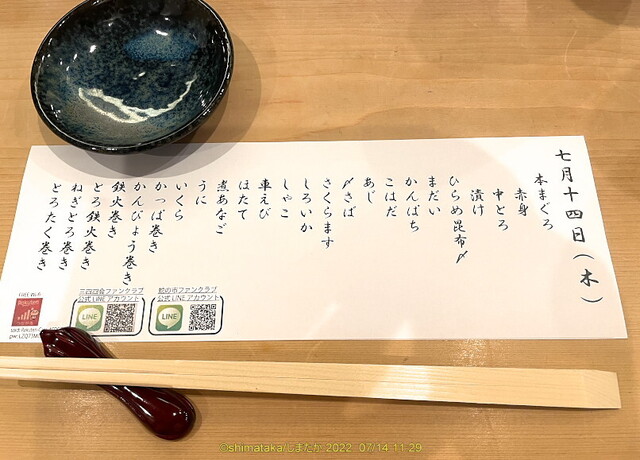 七月十四日(木)
本まぐろ
赤身
中とろ
漬け
ひらめ昆布〆
まだい
かんぱち
こはだ
あじ
〆さば
さくらます
しろいか
しゃこ
車えび
ほたて
煮あなご
うに
いくら
かっぱ巻き
かんぴょう巻き
鉄火巻き
とろ鉄火巻き
ねぎとろ巻き
とろたく巻き
蛇の市ファンクラブ
公式LINEアカウント
LINE
三四四会ファンクラブ
公式LINEアカウント
LINE
FREE Wi-Fi
©shimataka/しまたか 2022 07/14-11-29